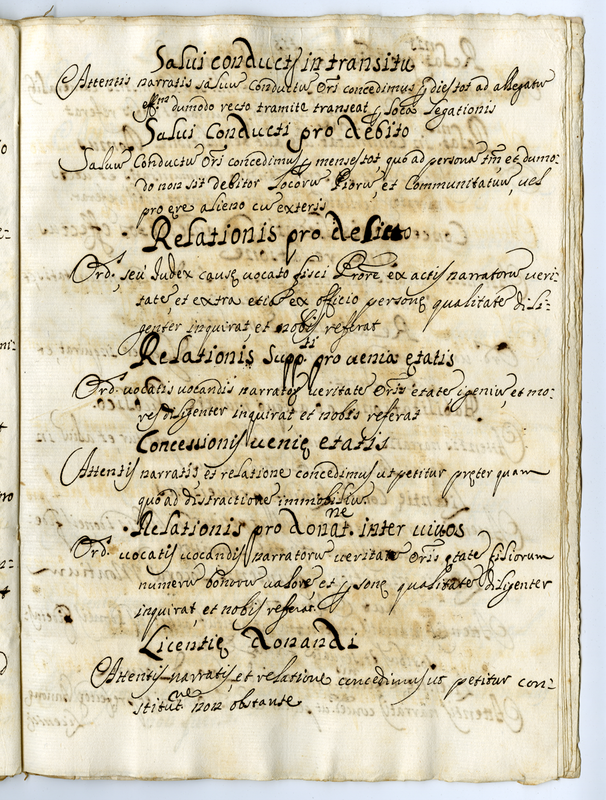 Salui conducts in transitu
Attentis narratis saluū conductū Oris concedimus p dies tot ad allegatū
effm dumodo recto tramite transeat p loca Legationis
Salui Conducti pro debito
Saluū Conductū Oris concedimus p menses tot quo ad persona tm et dumo-
do non sit debitor Locorū Piorū, et Communitatum, uel
pro ęre alieno cū exteris
Relationis pro delicto
Ord.s seu Judex causę uocato fisci Prore ex actis narratorū veri-
tatē, et extra etiā ex officio personę qualitatē dili-
genter inquirat et nobis referat
Relationis Suppti pro uenia ętatis
Ord.s uocatis uocandis narratorū veritatē Oris etatē igeniū, et mo-
res diligenter inquirat et nobis referat
Concessionis uenię etatis
Attentis narratis et relatione concedimus ut petitur pręter quam
quo ad distractionē immobiliū.
Relationis pro donat.ne inter uiuos
Ord.s uocatis uocandis narratorū veritatē Oris ętatē filiorum
numerū bonorū ualorē et p sonę qualitatē diligenter
inquirat et nobis referat
Licentię donandi
Attentis narratis, et relatione concedimus ut petitur con-
stitut.ne non obstante